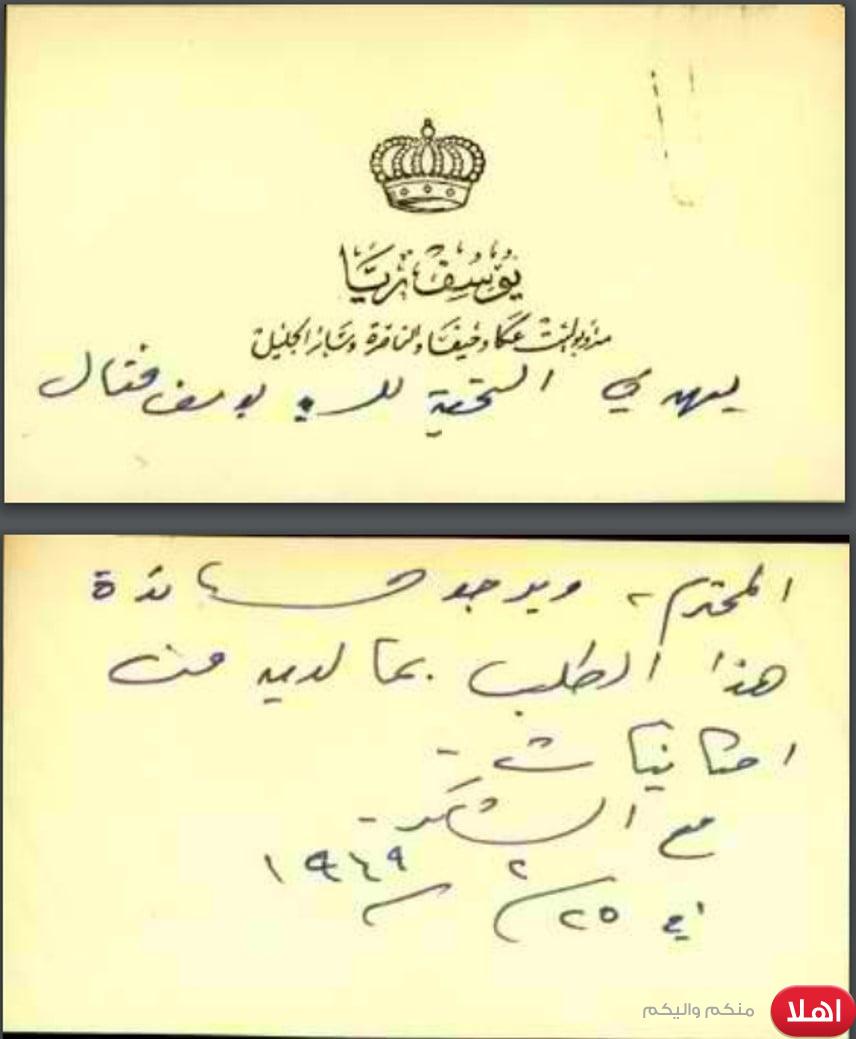 يوسف ريّا
متروبوليت عكا وحيفا والناصرة وسائر الجليل
يهدي التحية للسيد يوسف فتال
المحترم، ويرجو مساندة
هذا الطلب بما لديه من
امكانيات -
مع الشكر -
في ٢٥/٢/١٩٤٩
اهلا
منكم واليكم